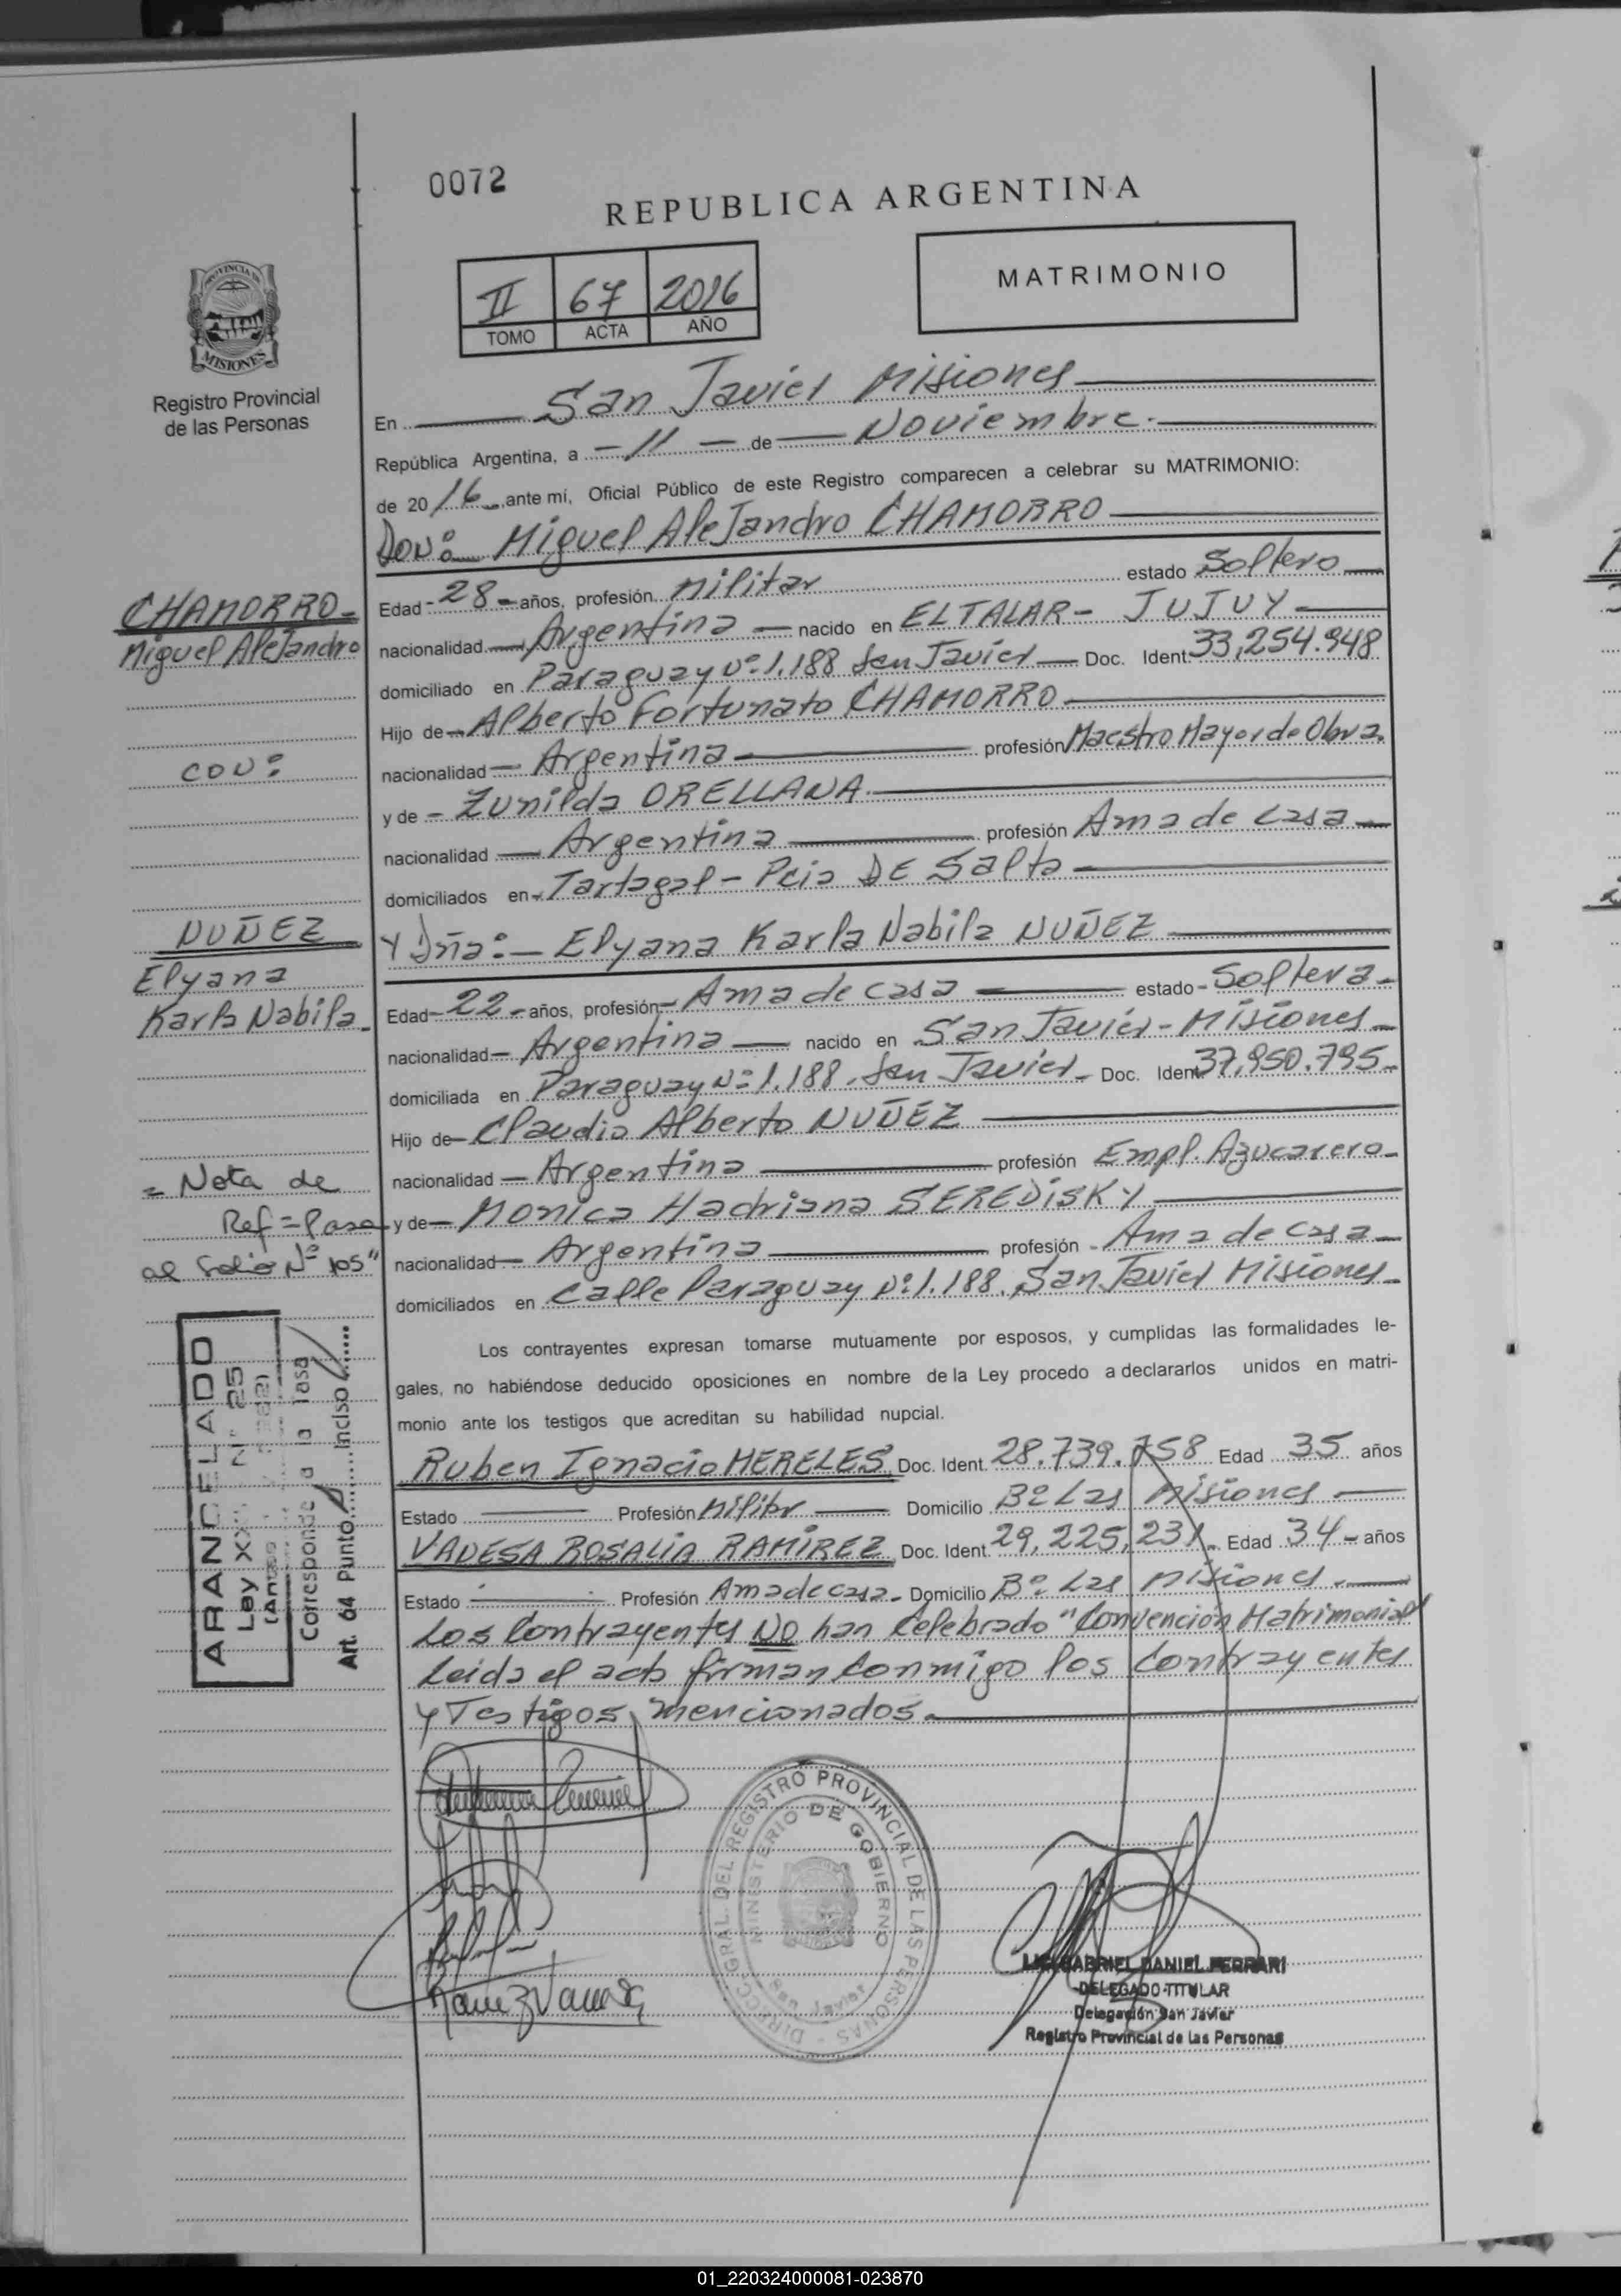 0072
REPUBLICA ARGENTINA
II 67 2016
TOMO ACTA AÑO
MATRIMONIO
PROVINCIA DE
MISIONES
Registro Provincial
de las Personas
En San Javier Misiones
República Argentina, a -11- de Noviembre.
de 2016 ante mí, Oficial Público de este Registro comparecen a celebrar su MATRIMONIO:
Don: Miguel AleJandro CHAMORRO
CHAMORRO-
Miguel AleJandro
con:
NUÑEZ
Elyana
Karla Nabila
Edad-28-años, profesión militar estado Soltero
nacionalidad Argentina nacido en EL TALAR- JUJUY
domiciliado en Paraguay Nº 1.188 San Javier Doc. Ident. 33,254.948
Hijo de Alberto Fortunato CHAMORRO
nacionalidad Argentina profesión Maestro Mayor de Obra.
y de - Zunilda ORELLANA
nacionalidad Argentina profesión Ama de casa
domiciliados en Tartagal - Pcia DE Salta
Y Dña: Elyana Karla Nabila NUÑEZ
Edad-22-años, profesión- Ama de casa estado- Soltera-
nacionalidad Argentina nacido en San Javier - Misiones
domiciliada en Paraguay Nº 1.188. San Javier Doc. Ident 37,950.795-
Hijo de Claudio Alberto NUÑEZ
nacionalidad Argentina profesión Empl. Azucarero
y de Monica Hadriana SEREDISKY
nacionalidad Argentina profesión - Ama de casa
domiciliados en calle Paraguay Nº 1.188. San Javier Misiones
= Nota de
Ref = Pasa
al folio Nº 105"
ARANCELADO
Ley XX Nº 25
Corresponde a la Tasa
Art. 64 Punto Inciso
Los contrayentes expresan tomarse mutuamente por esposos, y cumplidas las formalidades le-
gales, no habiéndose deducido oposiciones en nombre de la Ley procedo a declararlos unidos en matri-
monio ante los testigos que acreditan su habilidad nupcial.
Ruben Ignacio MERELES Doc. Ident. 28.739.758 Edad 35 años
Estado Profesión Militar Domicilio Bº Las Misiones
VANESA ROSALIA RAMIREZ Doc. Ident. 29,225,231 Edad 34 - años
Estado Profesión Ama de casa - Domicilio Bº Las Misiones
Los Contrayentes NO han Celebrado "Convención Matrimonial"
Leida el acta firman Conmigo los Contrayentes
y Testigos mencionados.
DIRECC. GRAL. DEL REGISTRO PROVINCIAL DE LAS PERSONAS
MINISTERIO DE GOBIERNO
San Javier
LIC. GABRIEL DANIEL FERRARI
DELEGADO TITULAR
Delegación San Javier
Registro Provincial de las Personas
01_220324000081-023870